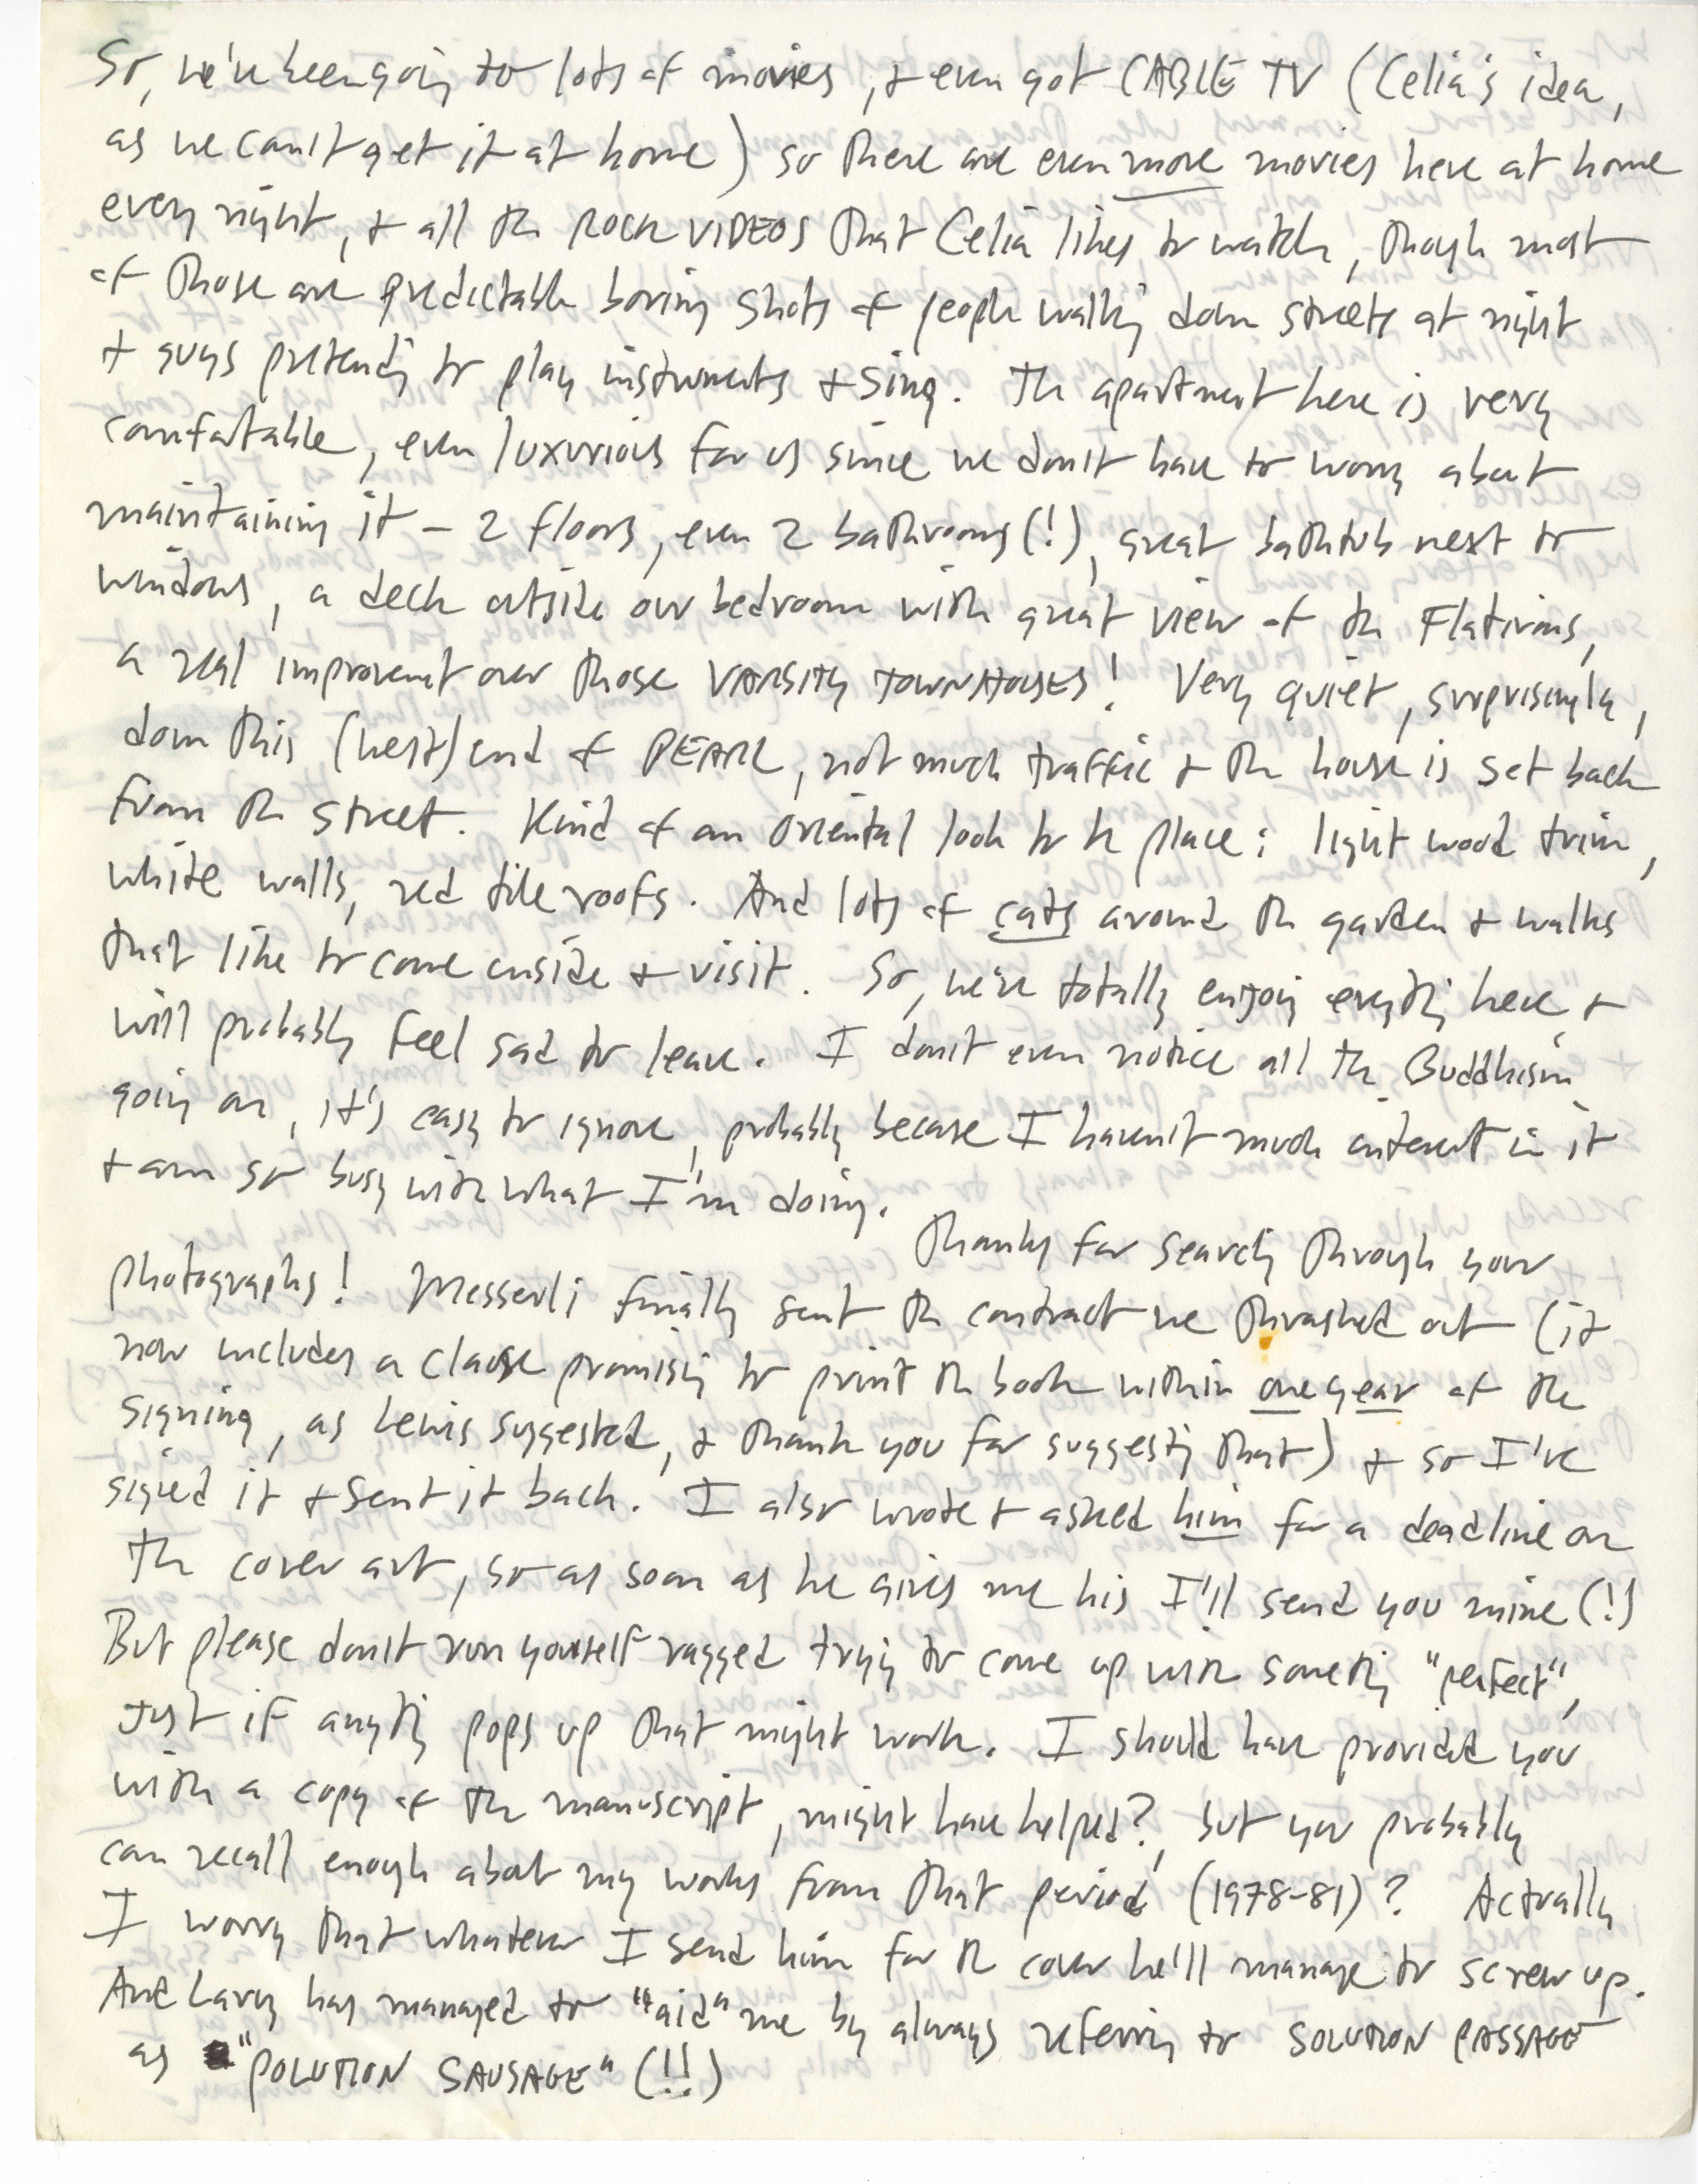 So, we've been going to lots of movies, + even got CABLE TV (Celia's idea,
as we can't get it at home) so there are even more movies here at home
every night, + all the ROCK VIDEOS that Celia likes to watch, though most
of those are predictable boring shots of people walking down streets at night
+ guys pretending to play instruments + sing. The apartment here is very
comfortable, even luxurious for us since we don't have to worry about
maintaining it – 2 floors, even 2 bathrooms (!), great bathtub next to
windows, a deck outside our bedroom with great view of the Flatirons,
a real improvement over those VARSITY TOWNHOUSES! Very quiet, surprisingly,
down this (west) end of PEARL, not much traffic + the house is set back
from the street. Kind of an oriental look to the place: light wood trim,
white walls, red tile roofs. And lots of cats around the garden + walks
that like to come inside + visit. So, we're totally enjoying everything here +
will probably feel sad to leave. I don't even notice all the Buddhism
going on, it's easy to ignore, probably because I haven't much interest in it
+ am so busy with what I'm doing.
Thanks for searching through your
photographs! Messerli finally sent the contract we thrashed out (it
now includes a clause promising to print the book within one year of the
signing, as Lewis suggested, + thank you for suggesting that) + so I've
signed it + sent it back. I also wrote + asked him for a deadline on
the cover art, so as soon as he gives me his I'll send you mine (!)
But please don't run yourself ragged trying to come up with something "perfect",
just if anything pops up that might work. I should have provided you
with a copy of the manuscript, might have helped?, but you probably
can recall enough about my works from that period (1978-81)? Actually
I worry that whatever I send him for the cover he'll manage to screw up.
And Larry has managed to "aid" me by always referring to SOLUTION PASSAGE
as "POLUTION SAUSAGE" (!!)